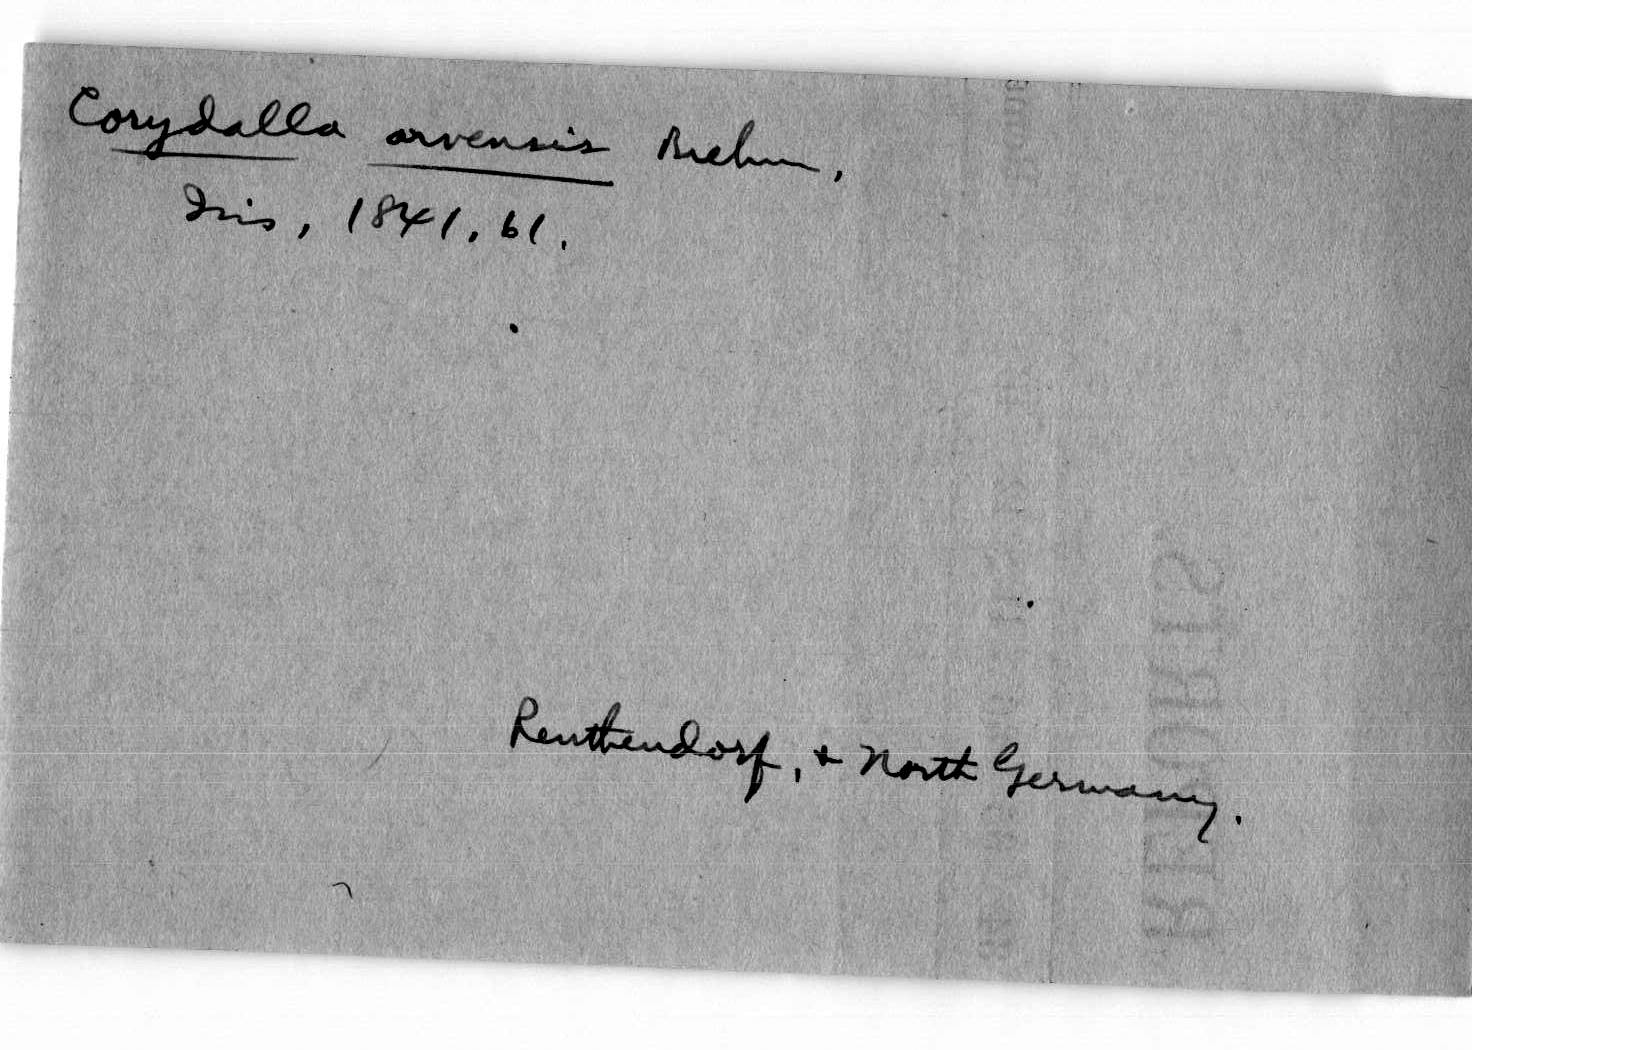 Corydalla arvensis Brehm,
Isis, 1841, 61.
Renthendorf, + North Germany.
REPORTS